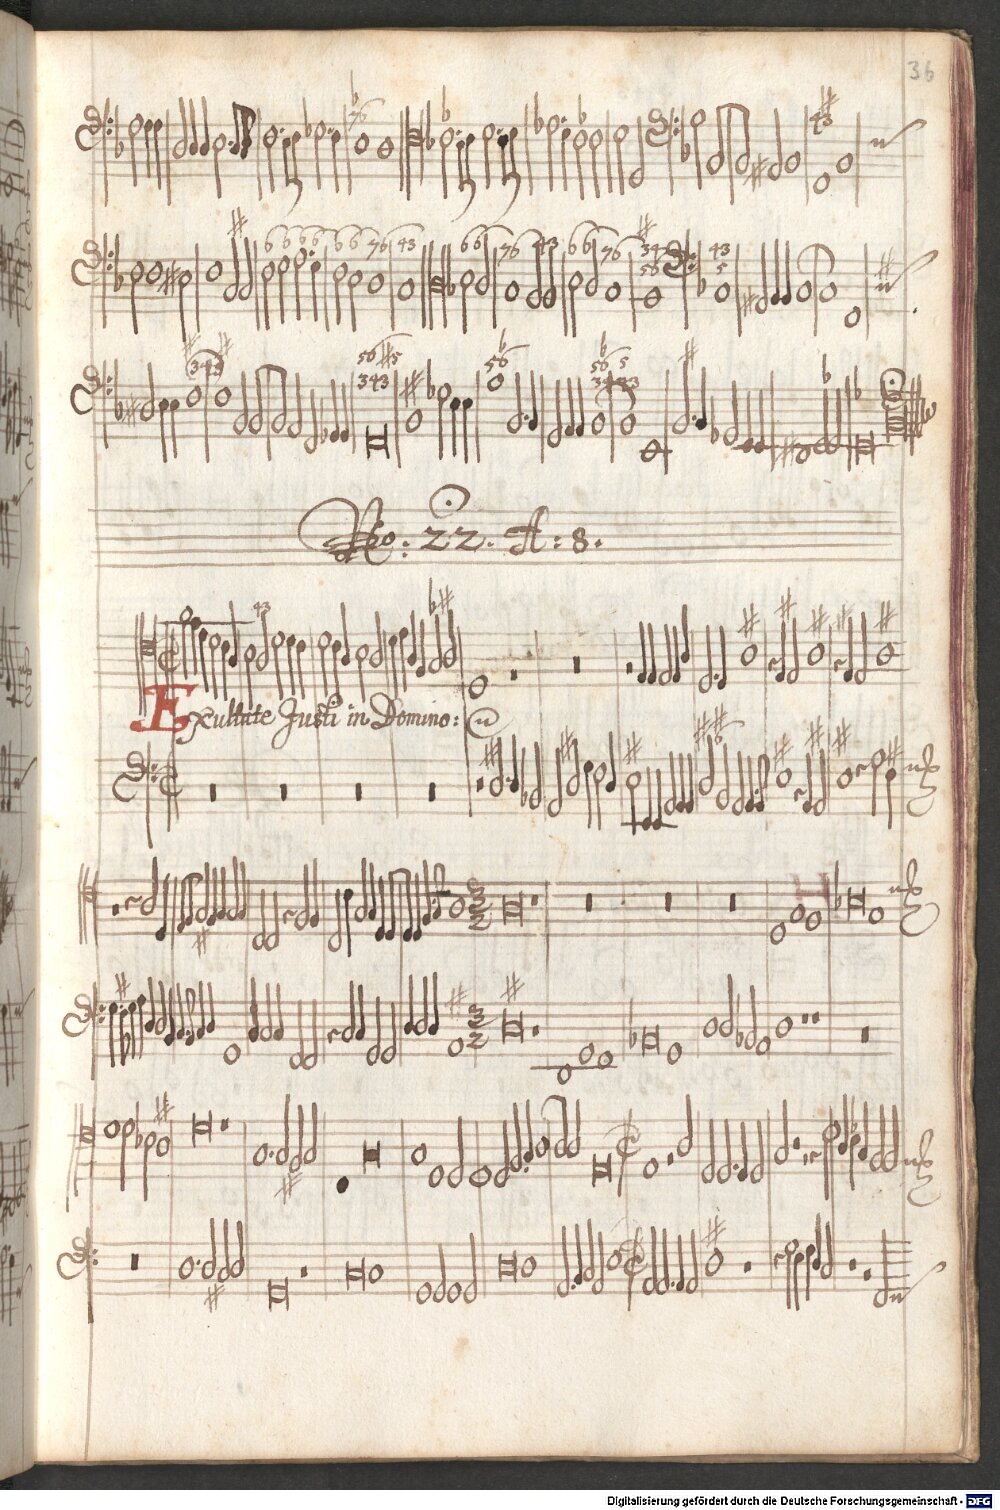 36
No: 22. A: 8.
Exultate Justi in Domino:
Digitalisierung gefördert durch die Deutsche Forschungsgemeinschaft - DFG